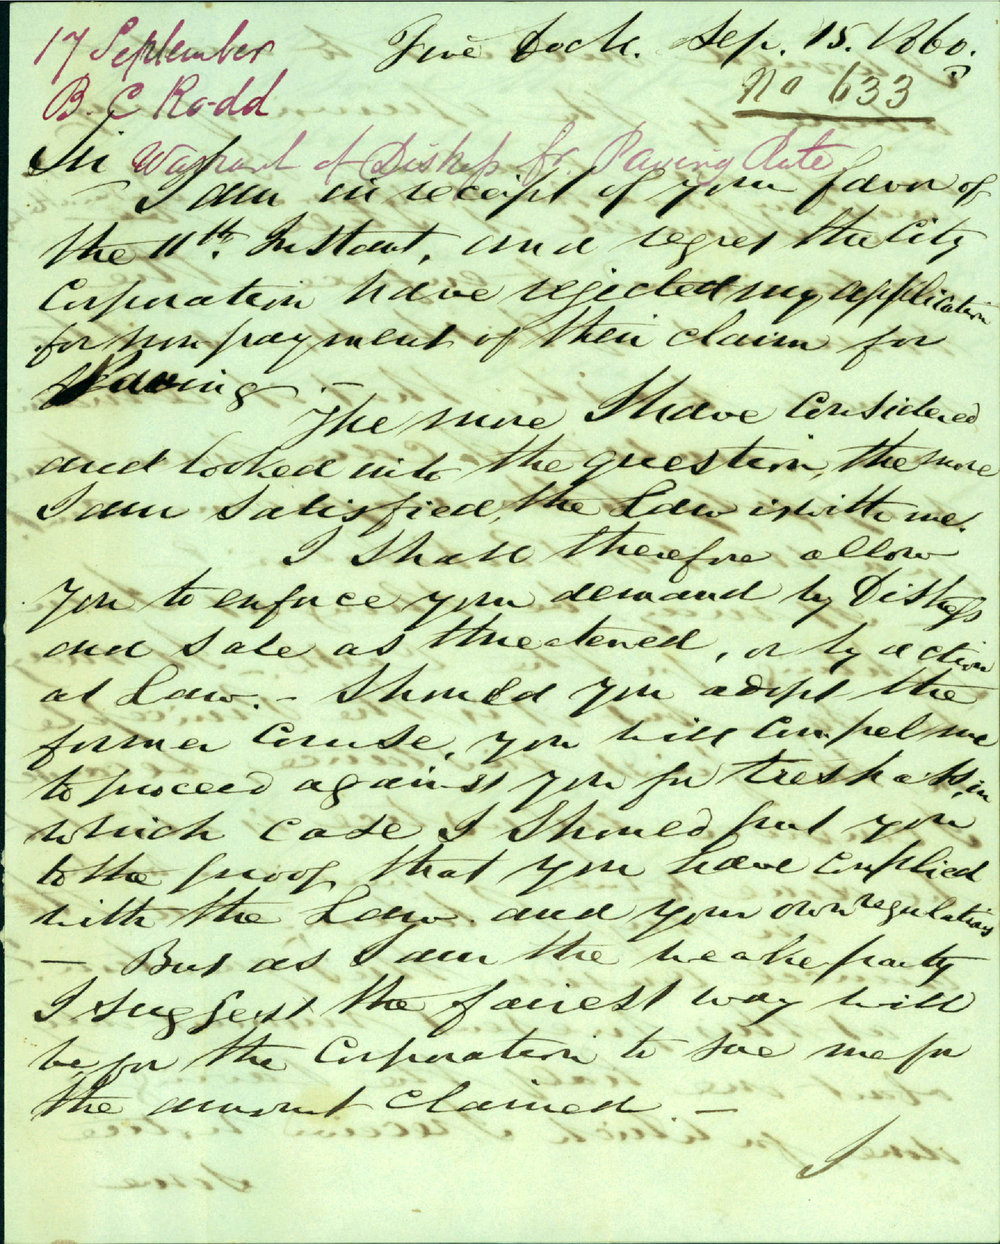 17 September
B. C Rodd
Warrant of Distress for Paving Rate
Five Dock. Sep. 15. 1860.
No 633
Sir
I am in receipt of your favor of
the 11th. Instant, and regret the City
Corporation have rejected my application
for non payment of their claim for
Paving –
The more I have considered
and looked into the question, the more
I am satisfied, the Law is with me.
I shall therefore allow
you to enforce your demand by Distress
and Sale as threatened, or by action
at Law. – Should you adopt the
former Course, you will Compel me
to proceed against you for trespass, in
which case I should put you
to the proof, that you have complied
with the Law. and your own regulations
– But as I am the weake party
I suggest the fairest way will
be, for the Corporation to sue me for
the amount claimed. –
I